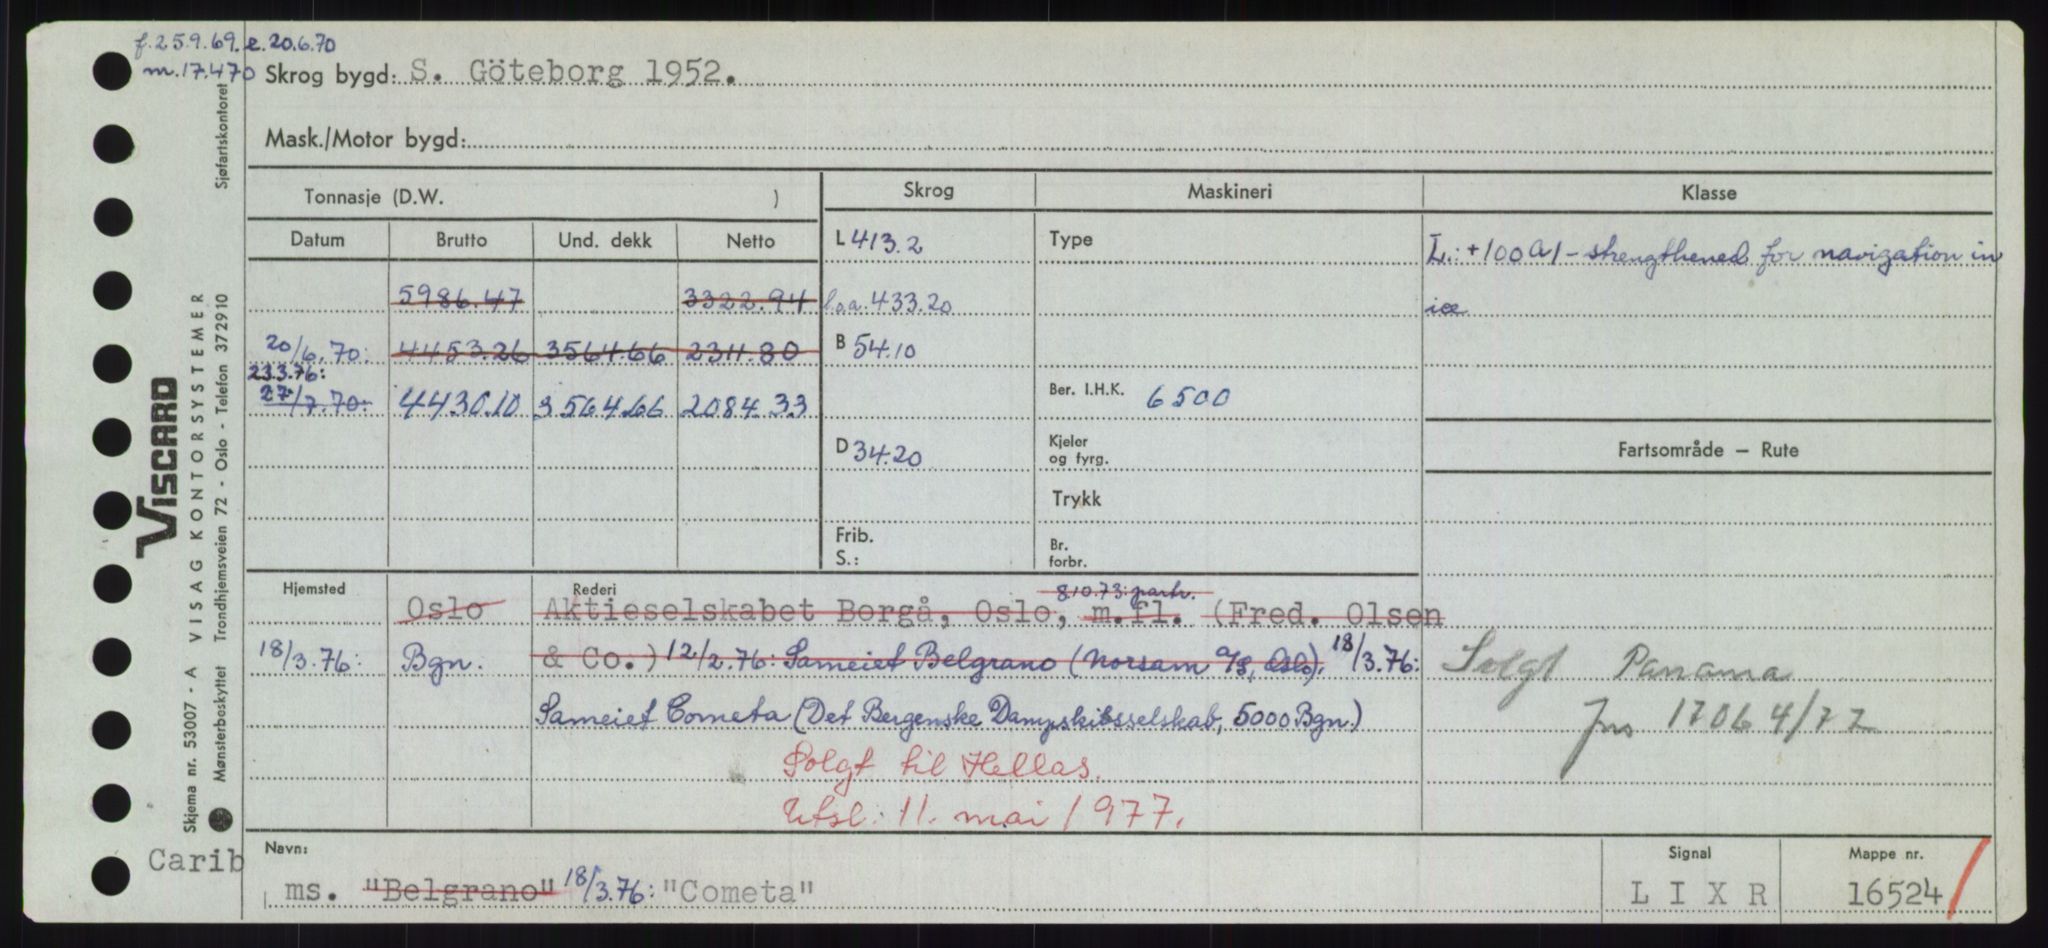 f. 25.9.69. e. 20.6.70
m. 17.470 Skrog bygd: S. Göteborg 1952.
Mask./Motor bygd:
Tonnasje (D.W. ) Skrog Maskineri Klasse
Datum Brutto Und. dekk Netto L 413.2 Type L.: +100A1 - strengthened for navigation in
5986.47 3322.94 l.o.a. 433.20 ice
20/6.70: 4453.26 3564.66 2311.80 B 54.10
23.3.76:
27/7.70: 4430.10 3564.66 2084.33 Ber. I.H.K. 6500
D 34.20 Kjeler
og fyrg. Fartsområde — Rute
Trykk
Frib.
S.: Br.
forbr.
Hjemsted Rederi 8.10.73: partr.
Oslo Aktieselskabet Borgå, Oslo, m.fl. (Fred. Olsen
18/3.76: Bgn. & Co.) 12/2.76: Sameiet Belgrano (Norsam A/S, Oslo). 18/3.76: Solgt Panama
Sameiet Cometa (Det Bergenske Dampskibsselskab, 5000 Bgn.) jns 17064/77
Solgt til Hellas.
Utsl.: 11. mai 1977.
Carib Navn: Signal Mappe nr.
ms. "Belgrano" 18/3.76: "Cometa" L I X R 16524
Sjøfartskontoret
VISCARD
VISAG KONTORSYSTEMER
Skjema nr. 53007 - A
Mønsterbeskyttet Trondhjemsveien 72 - Oslo - Telefon 372910